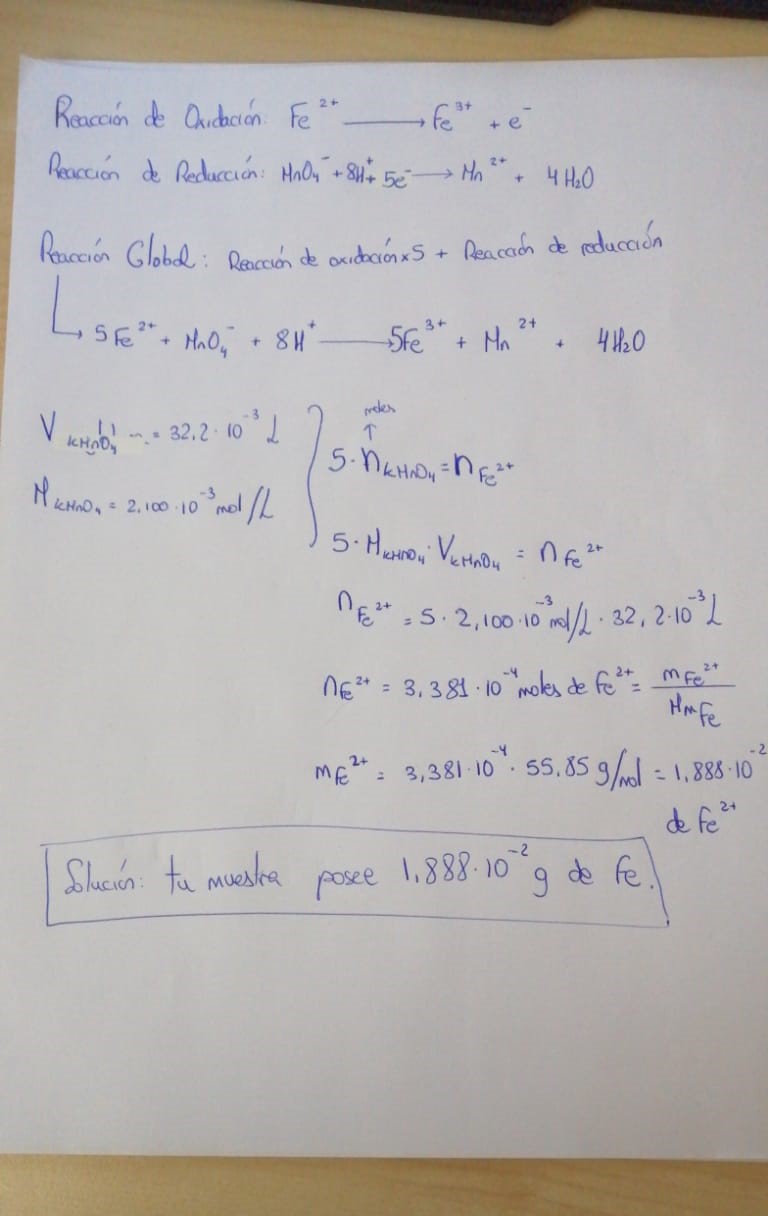 Reacción de Oxidación: Fe²⁺ ⟶ Fe³⁺ + e⁻
Reacción de Reducción: MnO₄⁻ + 8H⁺ + 5e⁻ ⟶ Mn²⁺ + 4H₂O
Reacción Global: Reacción de oxidación x5 + Reacción de reducción
↳ 5Fe²⁺ + MnO₄⁻ + 8H⁺ ⟶ 5Fe³⁺ + Mn²⁺ + 4H₂O
moles
↑
V KMnO₄ = 32,2·10⁻³ L
5·n KMnO₄ = n Fe²⁺
M KMnO₄ = 2,100·10⁻³ mol/L
5·M KMnO₄·V KMnO₄ = n Fe²⁺
n Fe²⁺ = 5·2,100·10⁻³ mol/L·32,2·10⁻³ L
n Fe²⁺ = 3,381·10⁻⁴ moles de Fe²⁺ = m Fe²⁺ / Mm Fe
m Fe²⁺ = 3,381·10⁻⁴·55,85 g/mol = 1,888·10⁻²
de Fe²⁺
Solución: tu muestra posee 1,888·10⁻² g de Fe.